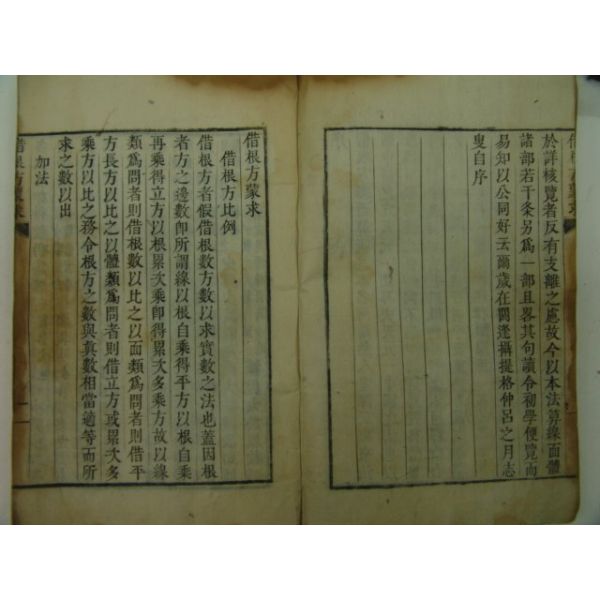 於詳核覽者反有支離之慮故今以本法算線面體
諸部若干条另爲一部且畧其句讀令初學便覽而
易知以公同好云爾歲在閼逢攝提格仲呂之月志
叟自序
借根方蒙求
借根方比例
借根方者假借根數方數以求實數之法也蓋因根
者方之邊數卽所謂線以根自乘得平方以根自乘
再乘得立方以根累次乘卽得累次多乘方故以線
類爲問者則借根數以比之以面類爲問者則借平
方長方以比之以體類爲問者則借立方或累次多
乘方以比之務令根方之數與眞數相當適等而所
求之數以出
加法
借根方蒙求